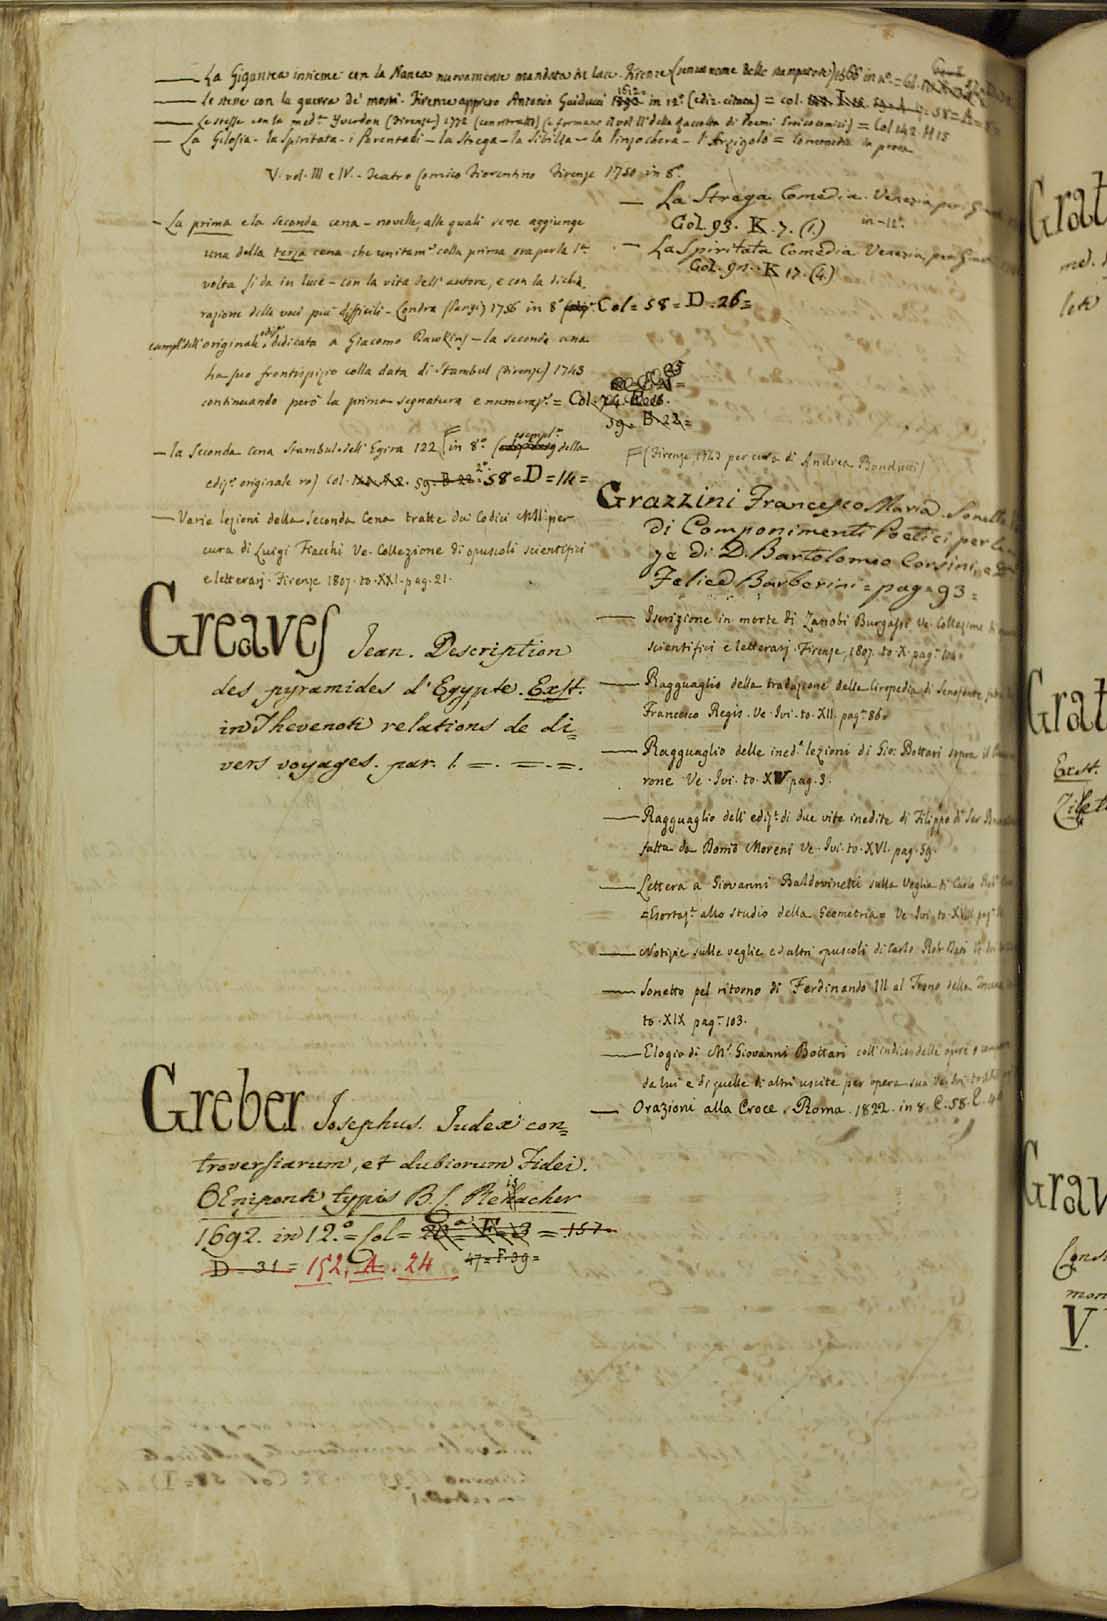 — La Gigantea insieme con la Nanea nuovamente mandata in luce. Firenze (senza nome dello stampatore) 1566 in
— le stesse con la guerra de' mostri. Firenze appresso Antonio Guiducci 1612 in 12.º (ediz. citata) = col. 58 =
— Le stesse con la med.ª Yverdon (Firenze) 1772 (con ritratti) (e formano il vol. II della Raccolta di Poemi Eroicomici) = Col 142 H 15
— La Gelosia - la Spiritata - i Parentadi - la Strega - la Sibilla - la Pinzochera - l'Arzigolo = Commedie in prosa
V. vol. III e IV. - Teatro Comico Fiorentino Firenze 1750 in 8.º
— La prima e la seconda cena - novelle, alle quali viene aggiunge
una della terza cena che unitam.e colla prima ora per la 1.ª
volta si da in luce - con la vita dell'autore, e con la dichia
razione delle voci più difficili - Londra (Parigi) 1756 in 8.º Col = 58 = D = 26 =
dell'originale ediz. dedicata a Giacomo Dawkins - la seconda cena
ha suo frontispizio colla data di Stambul (Firenze) 1743
continuando però la prima segnatura e numeraz.e = Col. 74.
59. B. 22 =
— la Seconda Cena Stambul. dell'Egira 122 F in 8.º (esempl.e della
ediz.e originale Col. 59. B. 22 = 58 = D = 14 =
— Varie lezioni della Seconda Cena tratte dai Codici MSS per
cura di Luigi Fiacchi Ve. Collezione di opuscoli scientifici
e letterarj. Firenze 1807. to. XXI. pag. 21.
Greaves Jean. Description
des pyramides d'Egypte. Exst.
in Thevenoti relations de di=
vers voyages. par. 1. = . = . = .
Greber Josephus. Judex con=
troversiarum, et dubiorum Fidei.
OEniponti typis B. C. Reisacher
1692. in 12.º = Col = 20 = F. 3 = 157
D = 31 = 152. A. 24 47 = F. 39 =
— La Strega Comedia. Venezia per
Col. 93. K. 7. (1.) in - 12.º
— La Spiritata Comedia Venezia per
Col. 93. K 17. (4.)
F (Firenze, 1743 per cura di Andrea Bonducci)
Grazzini Francesco Maria. Sonetto
di Componimenti Poetici per le
ze di D. Bartolomeo Corsini, e D.
Felice Barberini = pag = 93 =
— Iscrizione in morte di Zanobi Burgassi. Ve. Collezione di
scientifici e letterarj. Firenze, 1807. to. X. pag.
— Ragguaglio della traduzione della Ciropedia di Senofonte
Francesco Regis. Ve. Ivi. to. XII. pag. 86.
— Ragguaglio delle ined.e lezioni di Gio: Bottari sopra il
rone Ve. Ivi. to. XV. pag. 3.
— Ragguaglio dell'ediz.e di due vite inedite di Filippo di Ser
fatta da Moreni Ve. Ivi. to. XVI. pag. 59.
— Lettera a Giovanni Baldovinetti sulla Veglia di Carlo
= Esortaz.e allo studio della Geometria = Ve. Ivi. to. XVIII pag.
— Notizie sulle veglie ed altri opuscoli di Carlo Rob. Dati
— Sonetto pel ritorno di Ferdinando III al Trono della Toscana
to. XIX pag. 103.
— Elogio di M.r Giovanni Bottari coll'indice delle opere
da lui e di quelle di altri uscite per opera sua Ve. Ivi.
— Orazioni alla Croce. Roma. 1822. in 8. C. 58. C.
Grat
med.
Grat
Exst.
Grav
V.